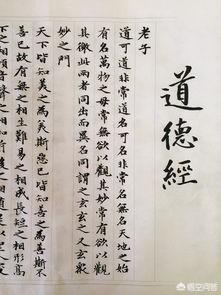 道德經
老子
道可道非常道名可名非常名無名天地之始
有名萬物之母常無欲以觀其妙常有欲以觀
其徼此兩者同出而異名同謂之玄玄之又玄眾
妙之門
天下皆知美之為美斯惡已皆知善之為善斯不
善已故有無之相生難易之相成長短之相形高
下之相傾音聲之相和前後之相隨是以聖人
悟空问答